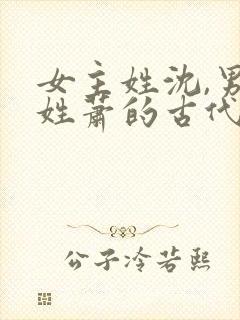 女主姓沈,男
姓萧的古代
公子冷若熙